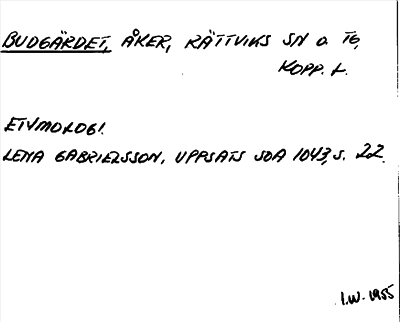 BUDGÄRDET, ÅKER, RÄTTVIKS SN o. TG,
KOPP. L.
ETYMOLOGI.
LENA GABRIELSSON, UPPSATS SOA 1043, S. 22.
I.W. 1955